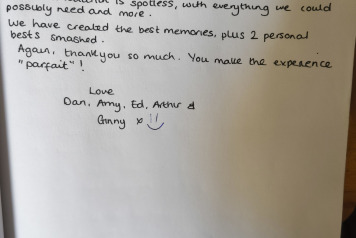 is spotless, with everything we could
possibly need and more.
We have created the best memories, plus 2 personal
bests smashed.
Again, thankyou so much. You make the experence
"parfait"!
Love
Dan, Amy, Ed, Arthur &
Ginny x